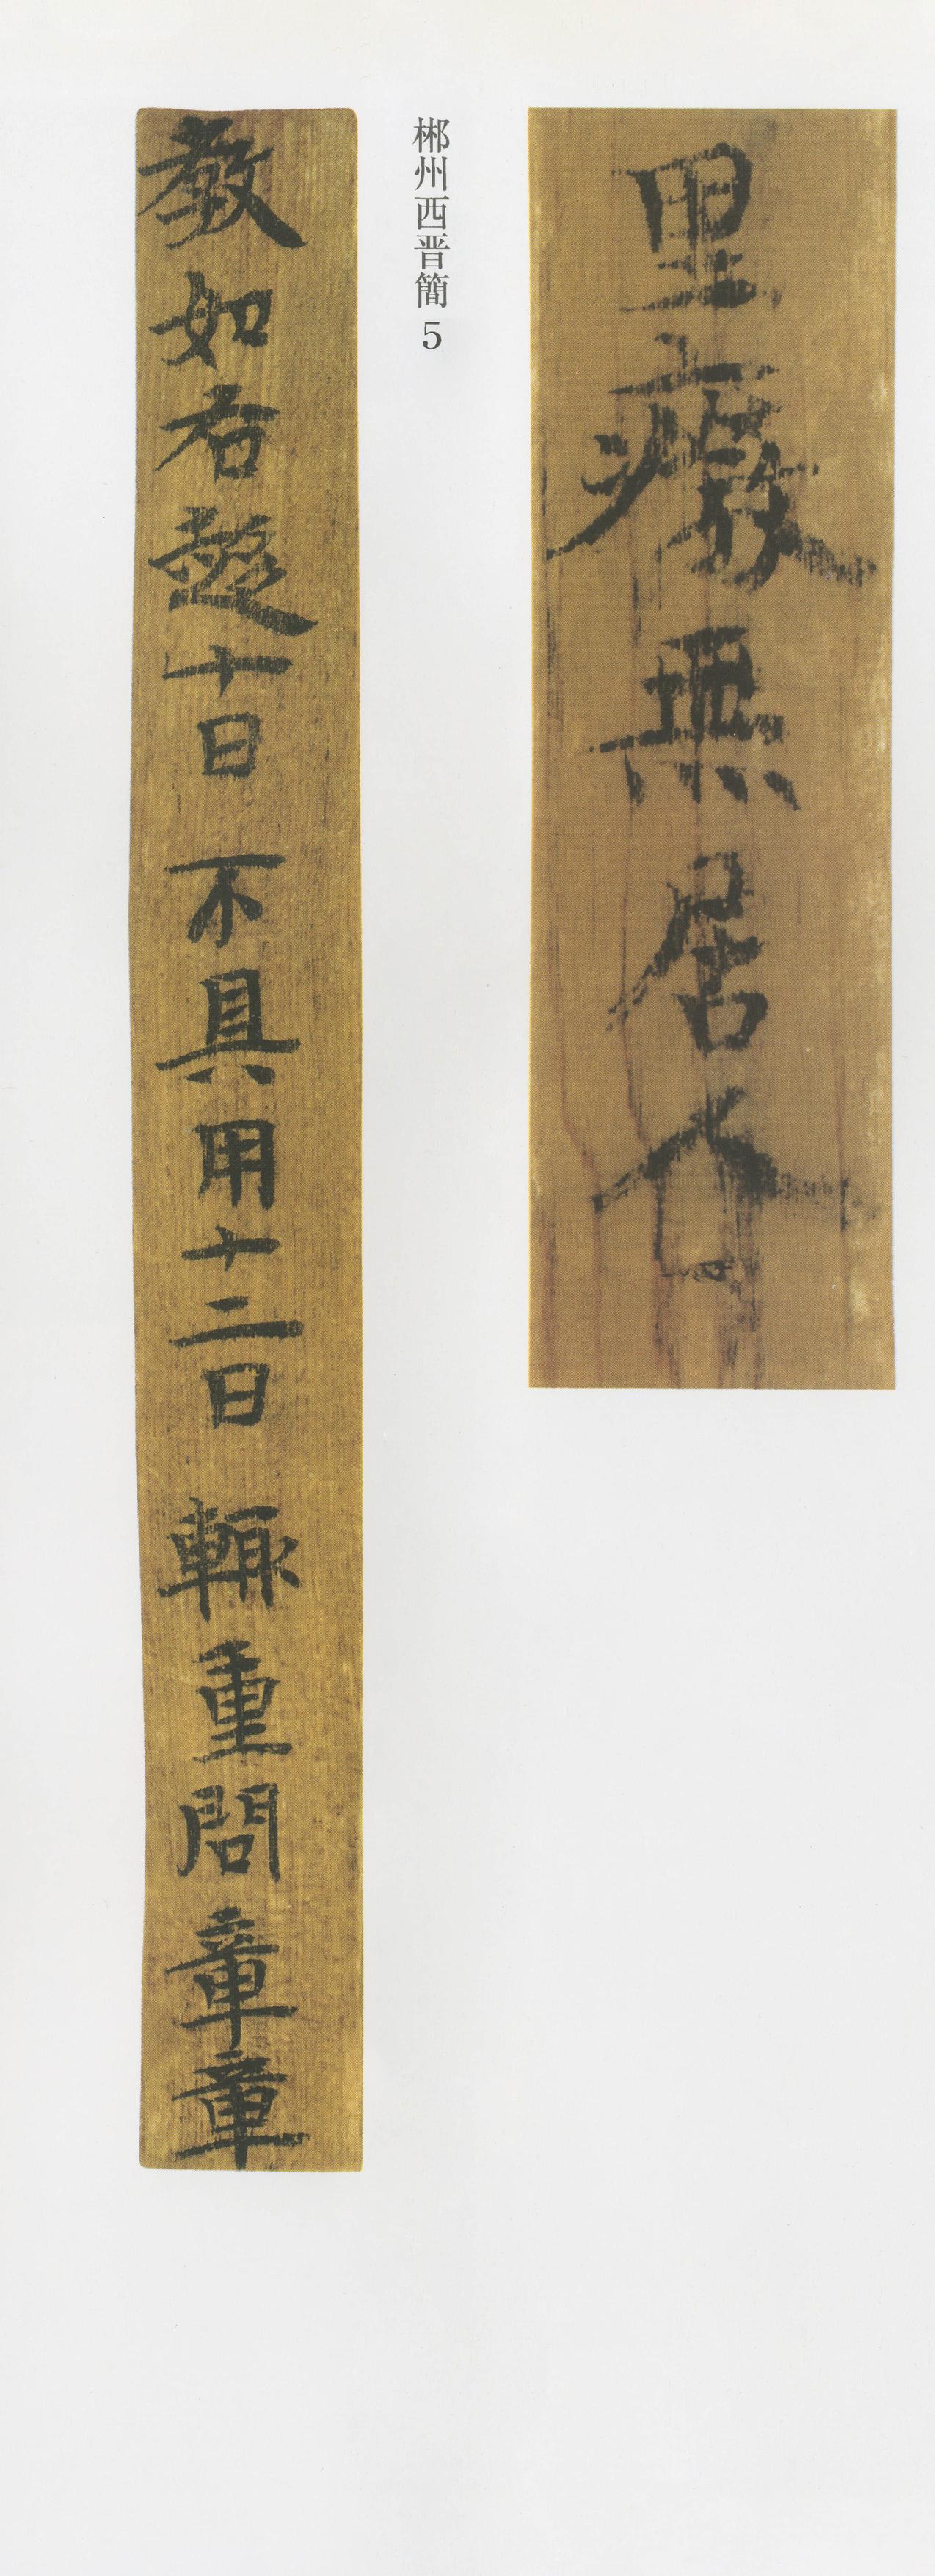 里廢無居人
郴州西晋簡 5
教如右愆十日 不具用十二日 輒重問章章